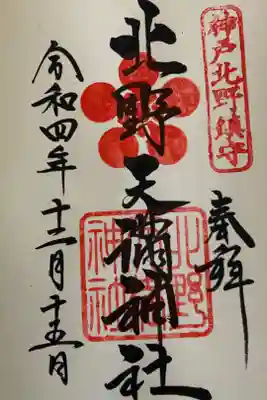 神戸北野鎮守
奉拝
北野天満神社
令和四年十二月十五日
北野
天満
神社